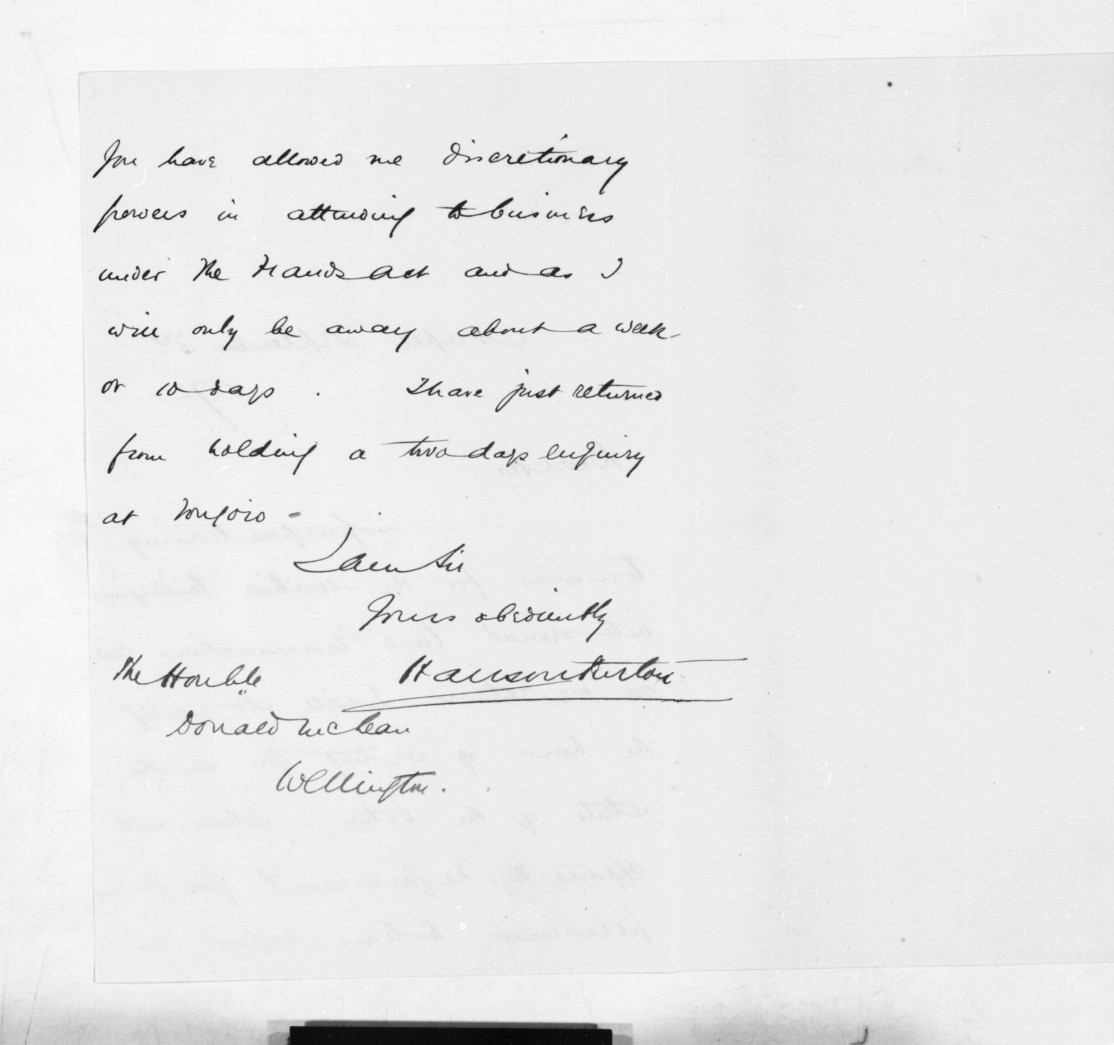 You have allowed me discretionary
powers in attending to business
under the Frauds act and as I
will only be away about a week
or 10 days . I have just returned
from holding a two days enquiry
at Tongoio -
I am Sir
Yours obediently
Hanson Turton
The Honble
Donald McLean
Wellington.